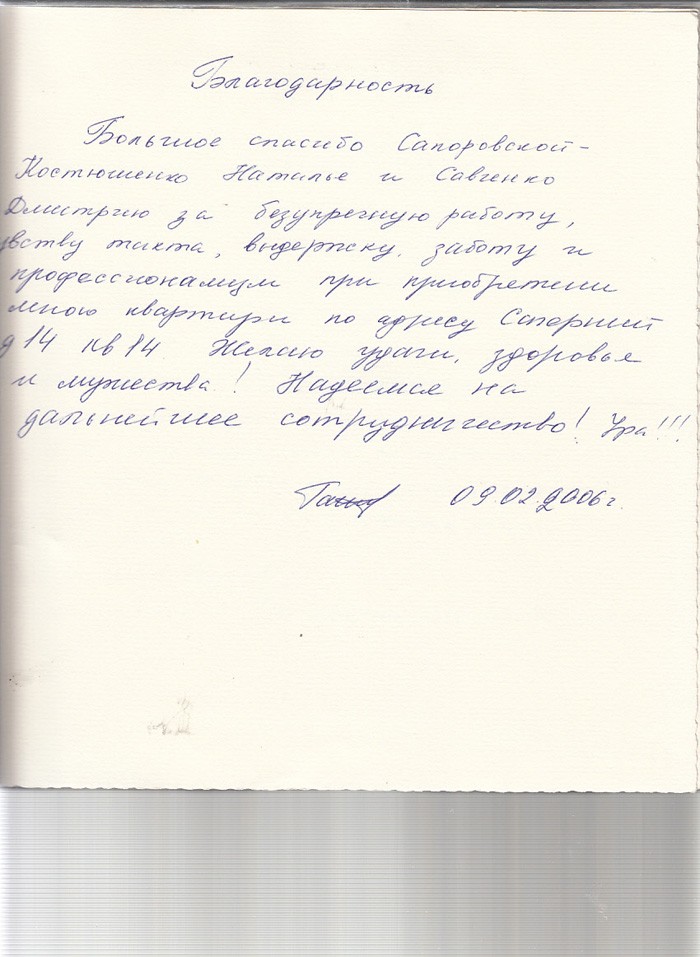 Благодарность
Большое спасибо Сапоровской-
Костюшенко Наталье и Савченко
Дмитрию за безупречную работу,
увству такта, выдержку, заботу и
профессионализм при приобретении
мною квартиры по адресу Саперный
д 14 кв 14. Желаю удачи, здоровья
и мужества! Надеемся на
дальнейшее сотрудничество! Ура!!!
09.02.2006г.